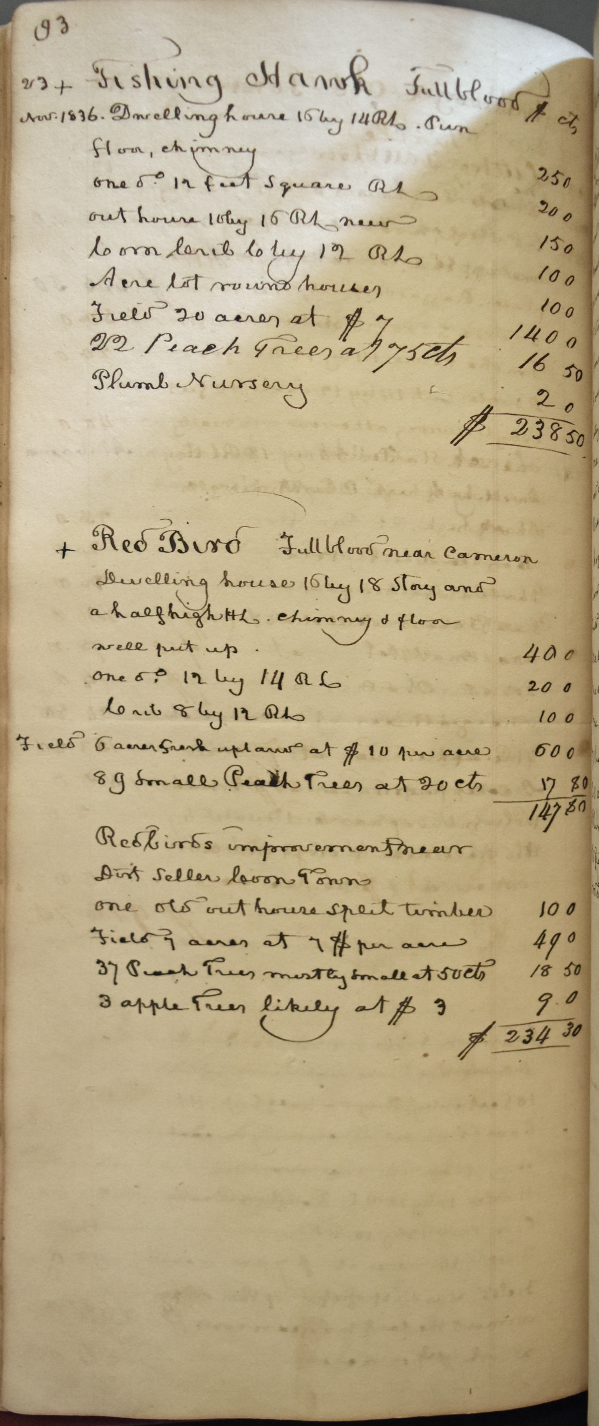 93
23 + Fishing Hawk Fullblood $ cts
Nov. 1836. Dwelling house 16 by 14 RL. Pun
floor, chimney 25 0
one do 12 feet square RL 20 0
out house 10 by 16 RL new 15 0
Corn Crib 6 by 12 RL 10 0
Acre lot round houses 10 0
Field 20 acres at $ 7 140 0
22 Peach Trees at 75 cts 16 50
Plumb Nursery 2 0
$ 238 50
+ Red Bird Fullblood near Cameron
Dwelling house 16 by 18 Story and
a half high HL. chimney & floor
well put up. 40 0
one do 12 by 14 RL 20 0
Crib 8 by 12 RL 10 0
Field 6 acres fresh upland at $ 10 per acre 60 0
89 Small Peach Trees at 20 cts 17 80
147 80
Redbirds improvement near
Dirt Seller Coon Town
one old out house split timber 10 0
Field 7 acres at 7 $ per acre 49 0
37 Peach Trees mostly small at 50 cts 18 50
3 apple Trees likely at $ 3 9 0
$ 234 30